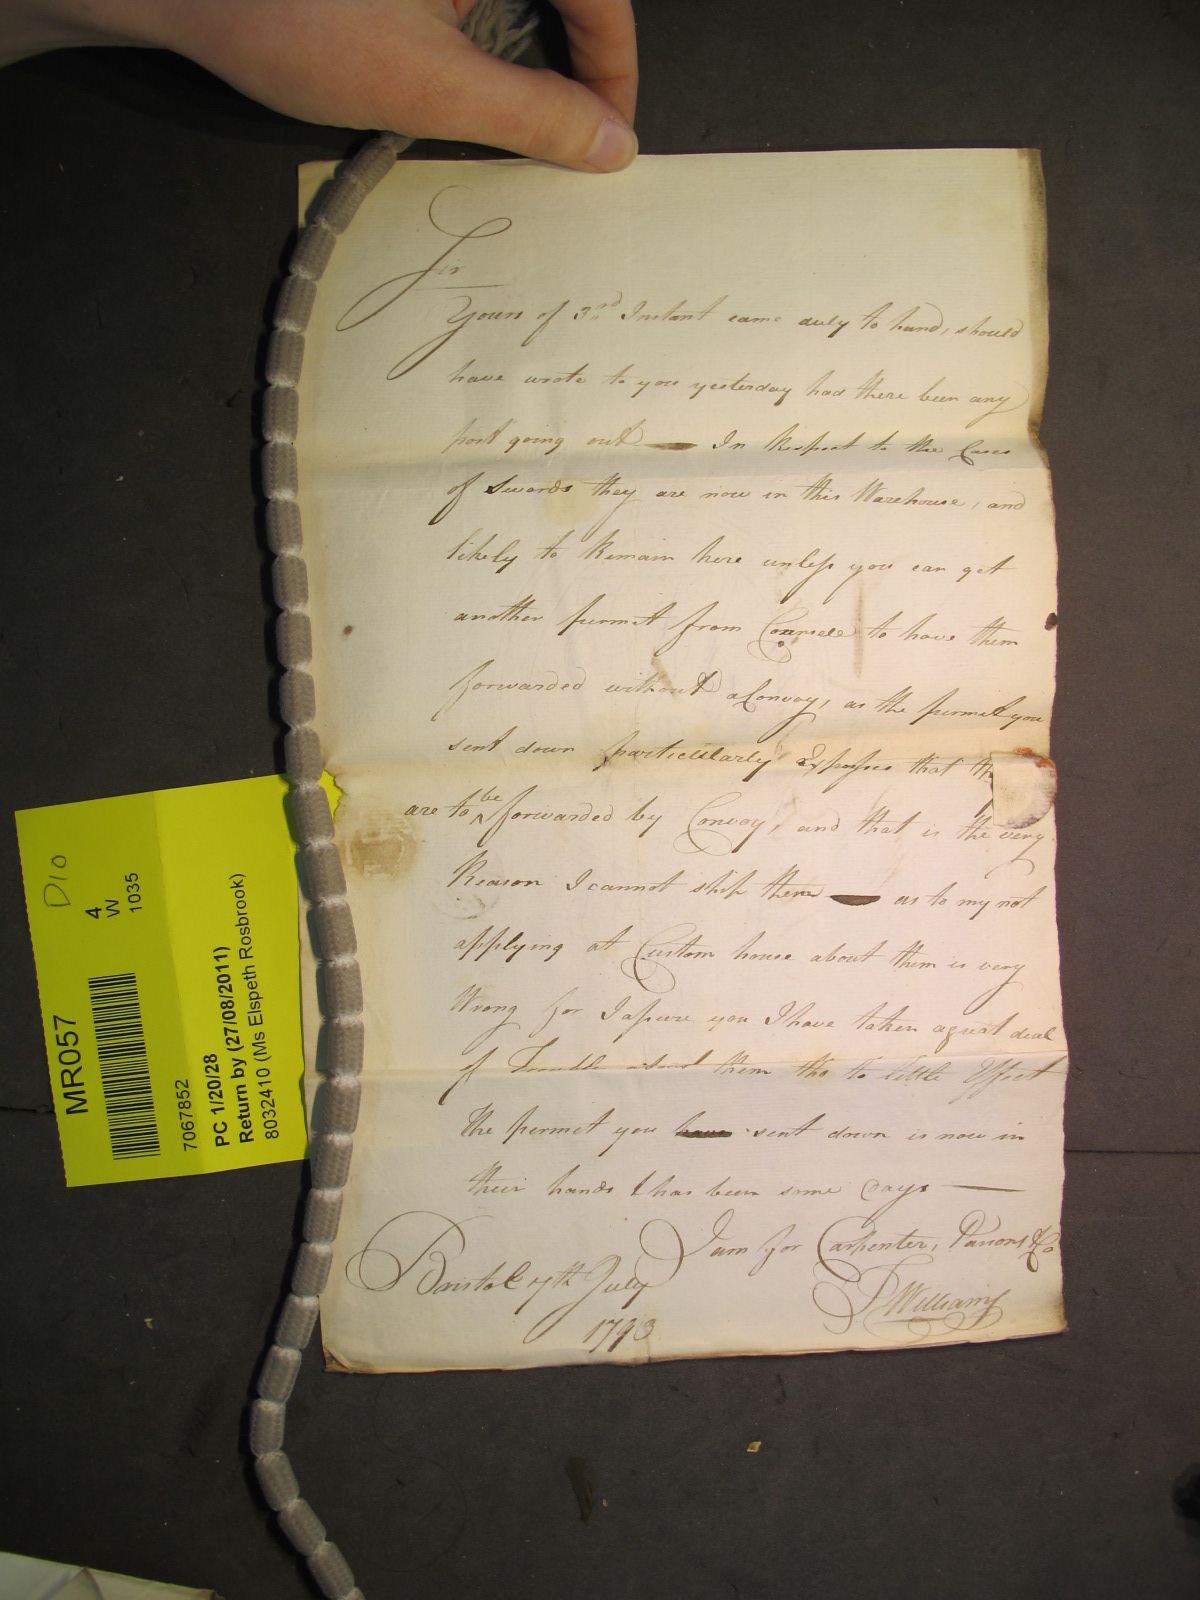 Sir
Yours of 3rd Instant came duly to hand, should
have wrote to you yesterday had there been any
post going out — In Respect to the Cases
of Swords they are now in this Warehouse, and
likely to Remain here unless you can get
another permit from Counsele to have them
forwarded without a Convoy, as the permit you
sent down particularly Expresses that
are to be forwarded by Convoy, and that is the very
Reason I cannot ship them — as to my not
applying at Custom house about them is very
Wrong for I assure you I have taken a great deal
of Trouble about them tho to little Effect
The permit you have sent down is now in
their hands & has been some days —
I am for Carpenter, Parsons & Co
Bristol 7th July
1793
J Williams
MR057
D10
4
W
1035
7067852
PC 1/20/28
Return by (27/08/2011)
8032410 (Ms Elspeth Rosbrook)